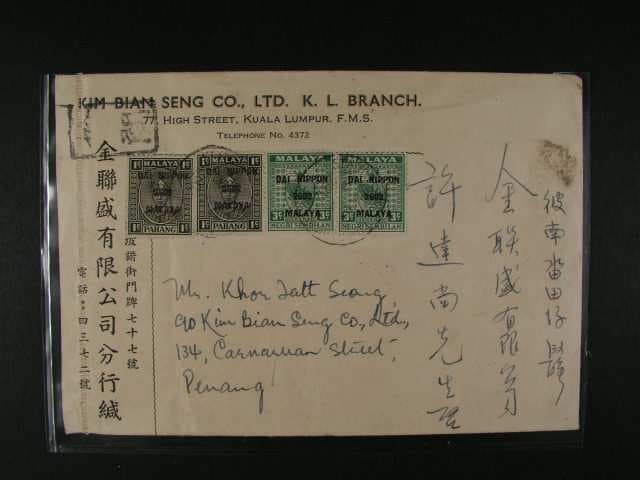 KIM BIAN SENG CO., LTD. K. L. BRANCH.
77, HIGH STREET, KUALA LUMPUR. F.M.S.
TELEPHONE No. 4372
金聯盛有限公司分行緘
諧街門牌七十七號
電話：四三七二號
MALAYA
DAI NIPPON
2602
MALAYA
PAHANG
MALAYA
DAI NIPPON
2602
MALAYA
PAHANG
MALAYA
DAI NIPPON
2602
MALAYA
3c
NEGRI SEMBILAN
MALAYA
DAI NIPPON
2602
MALAYA
3c
NEGRI SEMBILAN
Mr. Khor Tatt Seong,
c/o Kim Bian Seng Co., Ltd.,
134, Carnarvon Street,
Penang
金联盛有限公司
許達尚先生